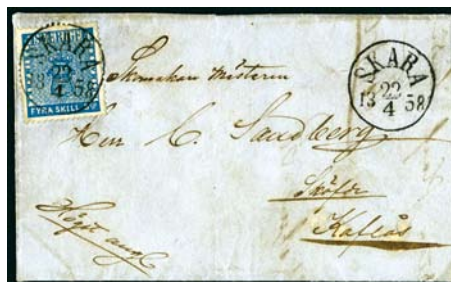 SKARA
22
13 4 58
FYRA SKILL
SKARA
22
13 4 58
Skomakare Mästaren
Herr C. Sandberg
Sköfde
Kaflås
Högst ang